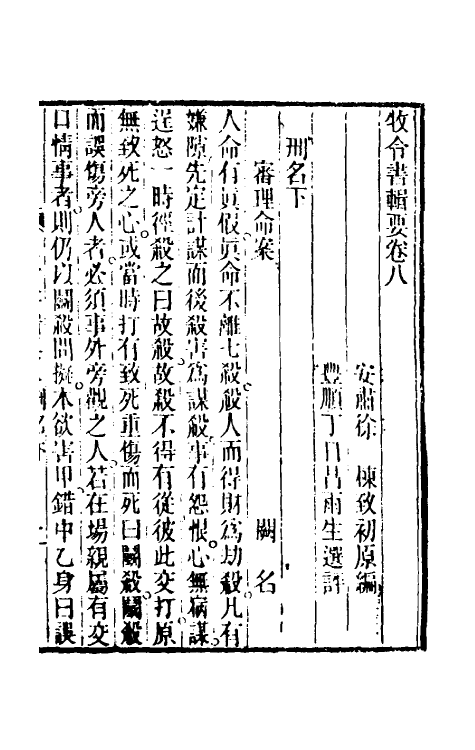 牧令書輯要卷八
安肅徐　棟致初原編
豐順丁日昌雨生選評
刑名下
審理命案　闕名
人命有眞假眞命不離七殺殺人而得財爲劫殺凡有
嫌隙先定計謀而後殺害爲謀殺事有怨恨心無病謀
逞怒一時徑殺之曰故殺故殺不得有從彼此交打原
無致死之心或當時打有致死重傷而死曰鬬殺鬬殺
而誤傷旁人者必須事外旁觀之人若在場親屬有交
口情事者則仍以鬬殺問擬本欲害甲錯中乙身曰誤